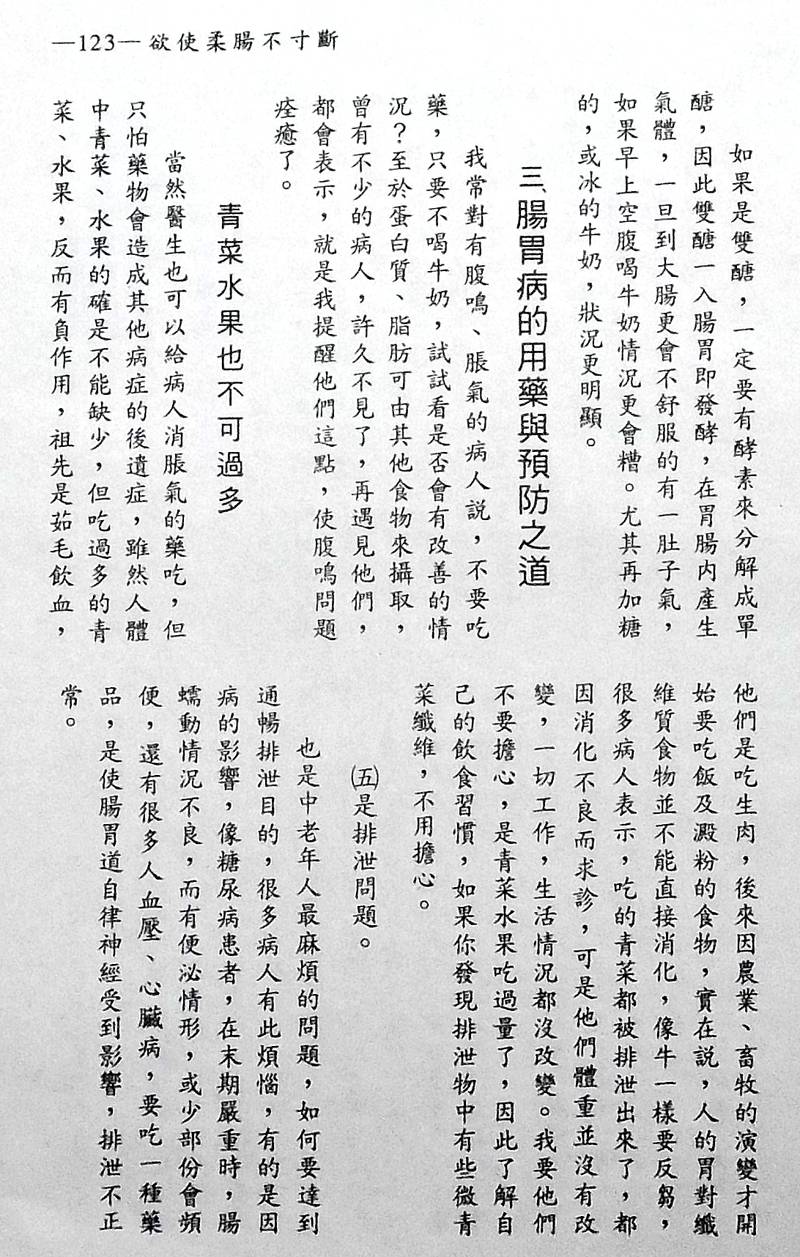 —123—欲使柔腸不寸斷
如果是雙醣，一定要有酵素來分解成單
醣，因此雙醣一入腸胃即發酵，在胃腸內產生
氣體，一旦到大腸更會不舒服的有一肚子氣，
如果早上空腹喝牛奶情況更會糟。尤其再加糖
的，或冰的牛奶，狀況更明顯。
三、腸胃病的用藥與預防之道
我常對有腹鳴、脹氣的病人說，不要吃
藥，只要不喝牛奶，試試看是否會有改善的情
況？至於蛋白質、脂肪可由其他食物來攝取，
曾有不少的病人，許久不見了，再遇見他們，
都會表示，就是我提醒他們這點，使腹鳴問題
痊癒了。
青菜水果也不可過多
當然醫生也可以給病人消脹氣的藥吃，但
只怕藥物會造成其他病症的後遺症，雖然人體
中青菜、水果的確是不能缺少，但吃過多的青
菜、水果，反而有負作用，祖先是茹毛飲血，
他們是吃生肉，後來因農業、畜牧的演變才開
始要吃飯及澱粉的食物，實在說，人的胃對纖
維質食物並不能直接消化，像牛一樣要反芻，
很多病人表示，吃的青菜都被排泄出來了，都
因消化不良而求診，可是他們體重並沒有改
變，一切工作，生活情況都沒改變。我要他們
不要擔心，是青菜水果吃過量了，因此了解自
己的飲食習慣，如果你發現排泄物中有些微青
菜纖維，不用擔心。
㈤是排泄問題。
也是中老年人最麻煩的問題，如何要達到
通暢排泄目的，很多病人有此煩惱，有的是因
病的影響，像糖尿病患者，在末期嚴重時，腸
蠕動情況不良，而有便泌情形，或少部份會頻
便，還有很多人血壓、心臟病，要吃一種藥
品，是使腸胃道自律神經受到影響，排泄不正
常。